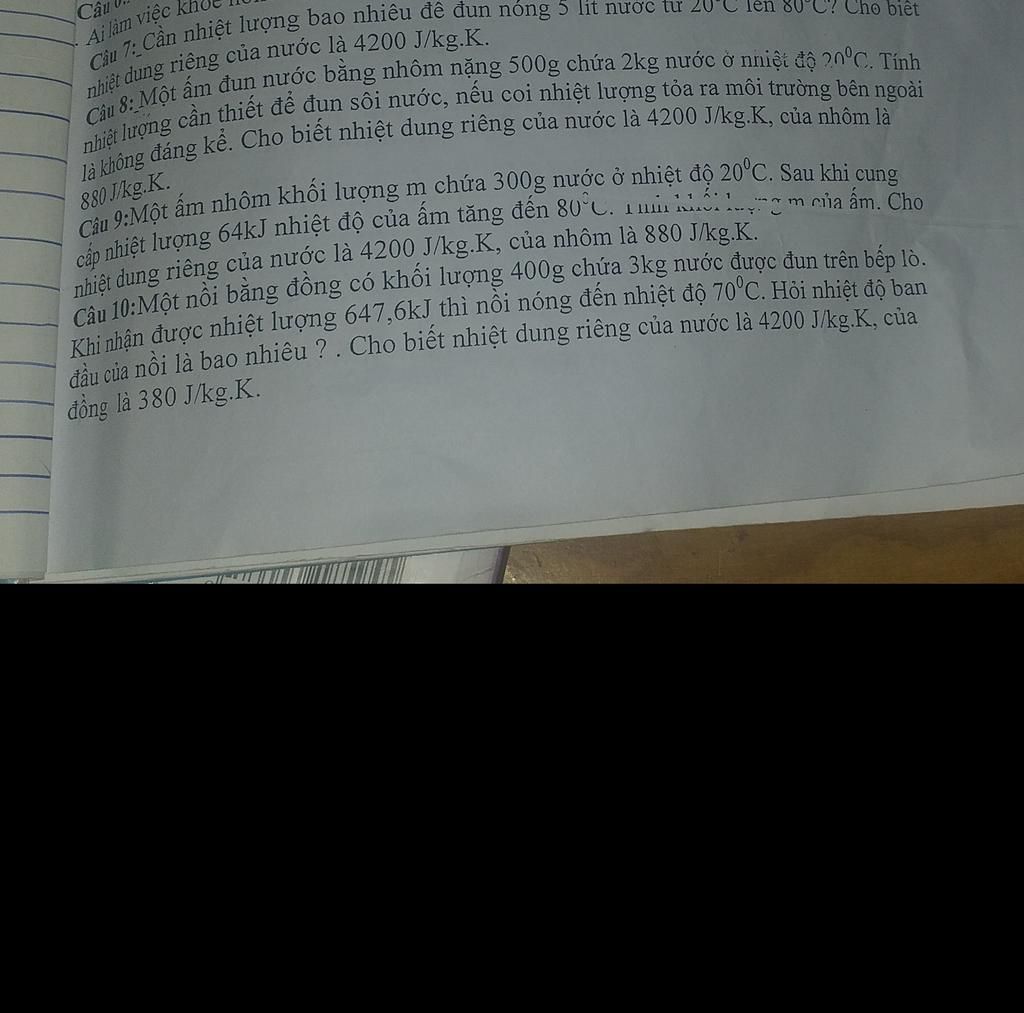 Câu
Ai làm việc khỏe
Câu 7: Cần nhiệt lượng bao nhiêu để đun nóng 5 lít nước từ 20°C lên 80°C? Cho biết
nhiệt dung riêng của nước là 4200 J/kg.K.
Câu 8: Một ấm đun nước bằng nhôm nặng 500g chứa 2kg nước ở nhiệt độ 20⁰C. Tính
nhiệt lượng cần thiết để đun sôi nước, nếu coi nhiệt lượng tỏa ra môi trường bên ngoài
là không đáng kể. Cho biết nhiệt dung riêng của nước là 4200 J/kg.K, của nhôm là
880 J/kg.K.
Câu 9:Một ấm nhôm khối lượng m chứa 300g nước ở nhiệt độ 20⁰C. Sau khi cung
cấp nhiệt lượng 64kJ nhiệt độ của ấm tăng đến 80°C. Tính khối lượng m của ấm. Cho
nhiệt dung riêng của nước là 4200 J/kg.K, của nhôm là 880 J/kg.K.
Câu 10:Một nồi bằng đồng có khối lượng 400g chứa 3kg nước được đun trên bếp lò.
Khi nhận được nhiệt lượng 647,6kJ thì nồi nóng đến nhiệt độ 70⁰C. Hỏi nhiệt độ ban
đầu của nồi là bao nhiêu ? . Cho biết nhiệt dung riêng của nước là 4200 J/kg.K, của
đồng là 380 J/kg.K.